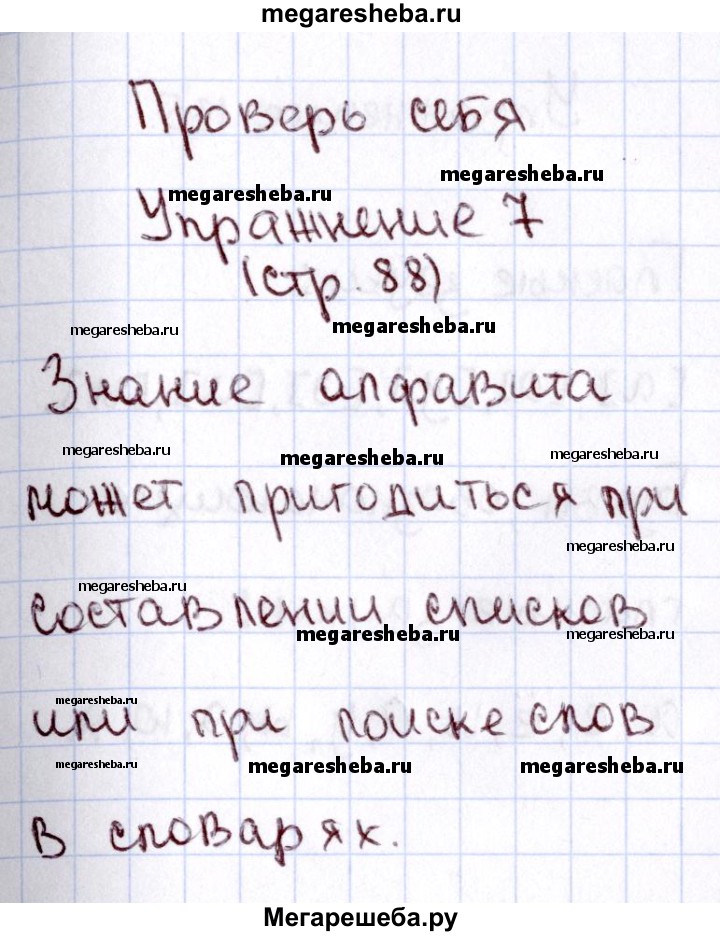 megaresheba.ru
Проверь себя
megaresheba.ru
megaresheba.ru
Упражнение 7
(стр. 88)
megaresheba.ru
megaresheba.ru
Знание алфавита
megaresheba.ru
megaresheba.ru
megaresheba.ru
может пригодиться при
megaresheba.ru
megaresheba.ru
составлении списков
megaresheba.ru
megaresheba.ru
megaresheba.ru
или при поиске слов
megaresheba.ru
megaresheba.ru
megaresheba.ru
в словарях.
Мегарешеба.ру